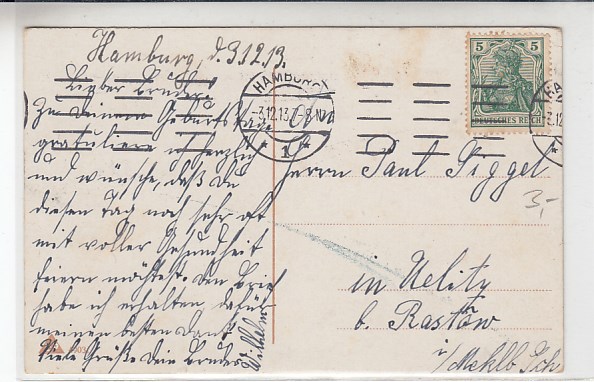 Hamburg, d. 3.12.13.
Lieber Bruder
Zu Deinem Geburtstage
gratuliere herzlich
und wünsche, daß Du
diesen Tag noch sehr oft
mit voller Gesundheit
feiern möchtest. Den Brief
habe ich erhalten dafür
meinen besten Dank
Viele Grüße Dein Bruder
Wilhelm
HAMBURG
-3.12.13.7-8N
* 1 *
5 5
DEUTSCHES REICH
Herrn Paul Piggel
in Uelitz
b. Rastow
i/Meklb Sch
3,-